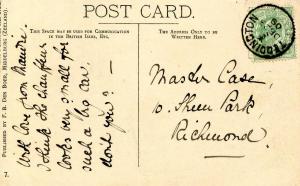 POST CARD.
THIS SPACE MAY BE USED FOR COMMUNICATION
IN THE BRITISH ISLES, ETC.
THE ADDRESS ONLY TO BE
WRITTEN HERE.
PUBLISHED BY F. B. DEN BOER, MIDDELBURG (ZEELAND).
7.
With love from Maudie.
I think the chauffeur
looks very small for
such a big car,
don't you? —
TEDDINGTON
Master Case,
Sheen Park,
Richmond.